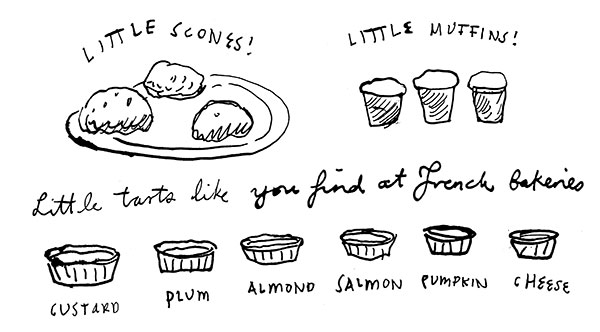 LITTLE SCONES!
LITTLE MUFFINS!
Little tarts like you find at French bakeries
CUSTARD
PLUM
ALMOND
SALMON
PUMPKIN
CHEESE